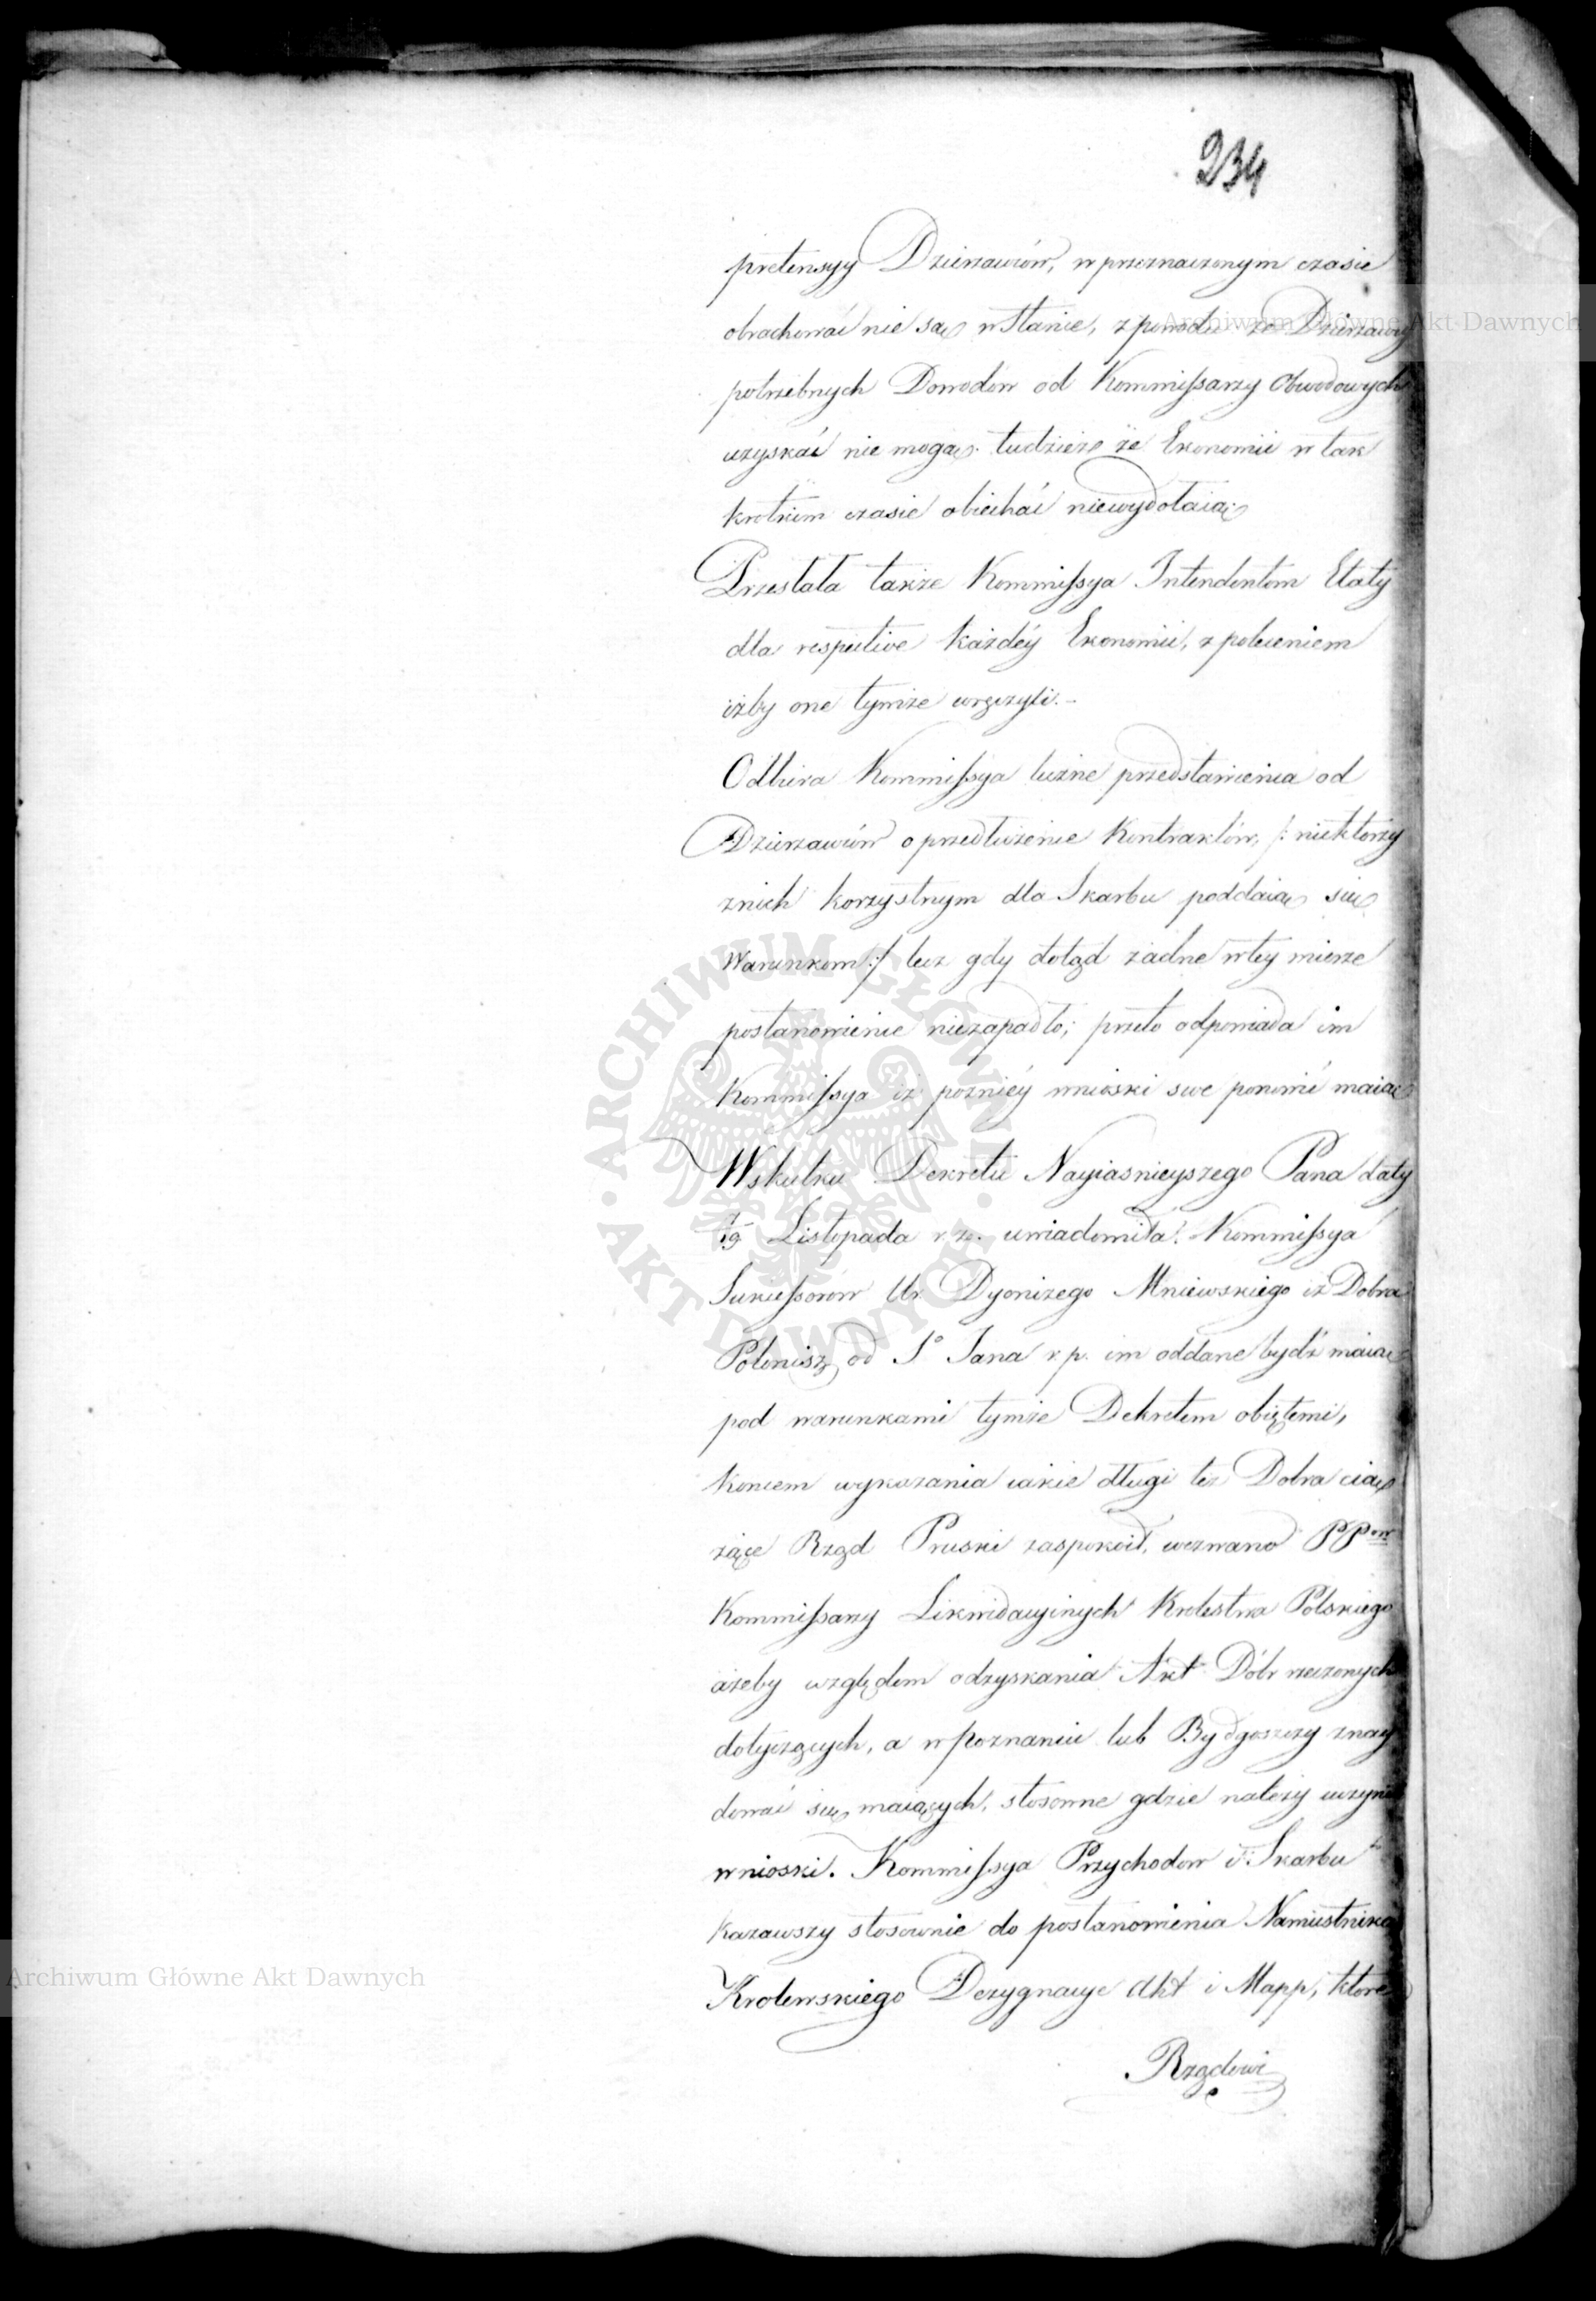 234
pretensyy Dzierzawców, w przeznaczonym czasie
obrachować nie są w Stanie, z powodu że Dzierzawcy
potrzebnych Dowodów od Kommissarzy Obwodowych
uzyskać nie mogą. tudzież że Ekonomii w tak
krotkim czasie obiechać niewydołaią
Przesłała także Kommissya Intendentom Etaty
dla respective każdéy Ekonomii, z poleceniem
iżby one tymże wręczyli.-
Odbiera Kommissya liczne przedstawienia od
Dzierzawców o przedłużenie Kontraktów, /: niektorzy
znich korzystnym dla Skarbu poddaią się
Warunkom :/ lecz gdy dotąd żadne wtey mierze
postanowienie niezapadło; przeto odpowiada im
Kommissya iż poźniéy wnioski swe ponowić maią
Wskutku Dekretu Nayiasnieyszego Pana daty
Listopada r. z. uwiadomiła Kommissya
Sukcessorów Ur. Dyonizego Mniewskiego iż Dobra
od So Jana r. p. im oddane bydź maią
pod warunkami tymże Dekretem obiętemi,
Koncem wykazania iakie długi też Dobra cią
żące Rząd Pruski zaspokoił, wezwano PPow
Kommissarzy Likwidacyinych Krolestwa Polskiego
ażeby względem odzyskania Akt Dóbr rzeczonych
dotyczących, a w Poznaniu lub Bydgoszczy znay
dować się maiących, stosowne gdzie należy uczynili
wnioski. Kommissya Przychodow i Skarbu
kazawszy stosownie do postanowienia Namiestnika
Krolewskiego Dezygnacye Akt i Mapp, ktore
Rządowi
Archiwum Główne Akt Dawnych
Archiwum Główne Akt Dawnych
ARCHIWUM GŁÓWNE · AKT DAWNYCH ·